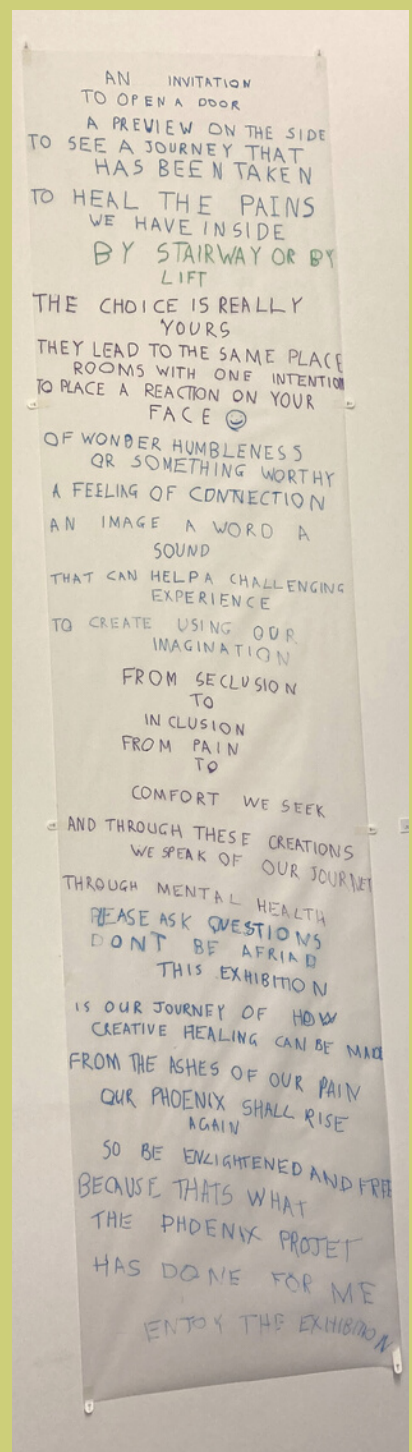 AN INVITATION
TO OPEN A DOOR
A PREVIEW ON THE SIDE
TO SEE A JOURNEY THAT
HAS BEEN TAKEN
TO HEAL THE PAINS
WE HAVE INSIDE
BY STAIRWAY OR BY
LIFT
THE CHOICE IS REALLY
YOURS
THEY LEAD TO THE SAME PLACE
ROOMS WITH ONE INTENTION
TO PLACE A REACTION ON YOUR
FACE ☺
OF WONDER HUMBLENESS
OR SOMETHING WORTHY
A FEELING OF CONNECTION
AN IMAGE A WORD A
SOUND
THAT CAN HELP A CHALLENGING
EXPERIENCE
TO CREATE USING OUR
IMAGINATION
FROM SECLUSION
TO
INCLUSION
FROM PAIN
TO
COMFORT WE SEEK
AND THROUGH THESE CREATIONS
WE SPEAK OF OUR JOURNEY
THROUGH MENTAL HEALTH
PLEASE ASK QUESTIONS
DONT BE AFRIAD
THIS EXHIBITION
IS OUR JOURNEY OF HOW
CREATIVE HEALING CAN BE MADE
FROM THE ASHES OF OUR PAIN
OUR PHOENIX SHALL RISE
AGAIN
SO BE ENLIGHTENED AND FREE
BECAUSE THATS WHAT
THE PHOENIX PROJET
HAS DONE FOR ME
ENJOY THE EXHIBITION